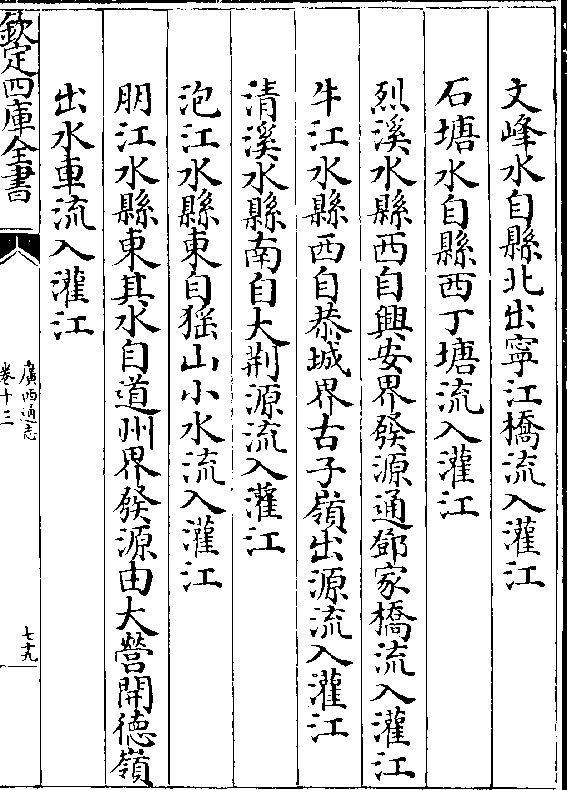 文峰水自縣北出寧江橋流入灌江
石塘水自縣西丁塘流入灌江
烈溪水縣西自興安界發源通鄧家橋流入灌江
牛江水縣西自恭城界古子嶺出源流入灌江
清溪水縣南自大荆源流入灌江
泡江水縣東自猺山小水流入灌江
朋江水縣東其水自道州界發源由大營開德嶺
出水車流入灌江
欽定四庫全書
廣西通志
卷十三
七十九